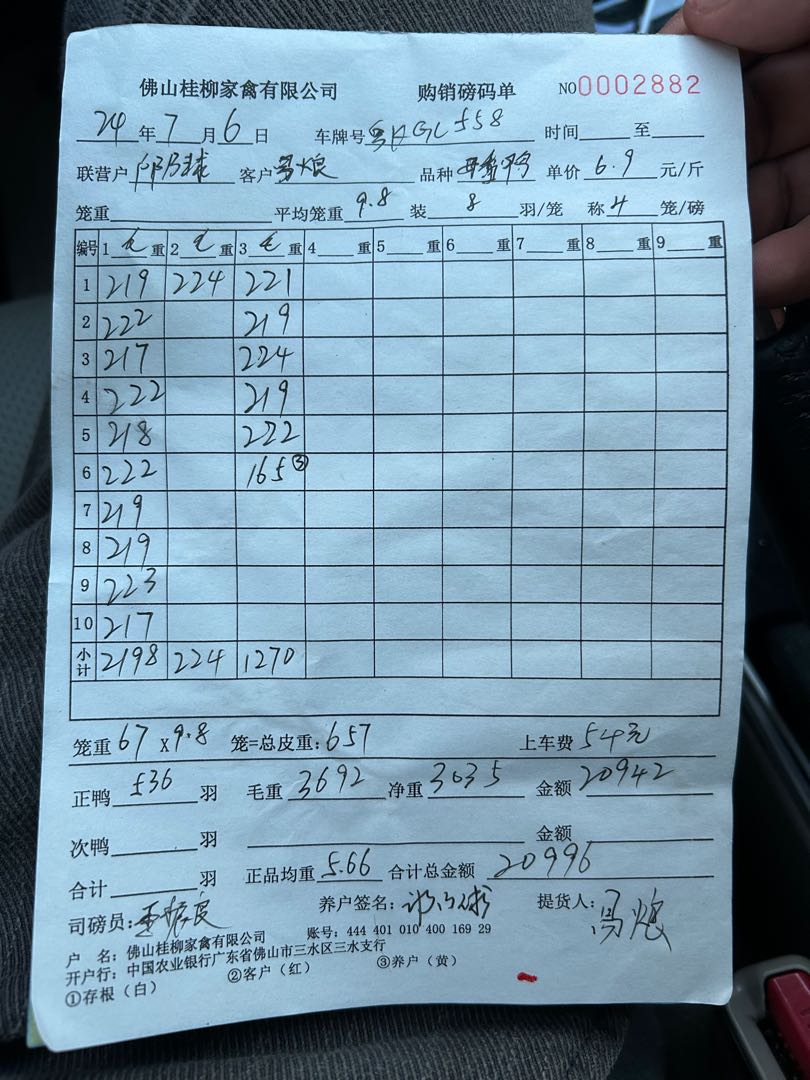 佛山桂柳家禽有限公司 购销磅码单 NO 0002882
24年7月6日 车牌号 粤AGL558 时间 至
联营户 客户 马烺 品种 单价 6.9 元/斤
笼重 平均笼重 9.8 装 8 羽/笼 称 4 笼/磅
编号 1 毛 重 2 毛 重 3 毛 重 4 重 5 重 6 重 7 重 8 重 9 重
1 219 224 221
2 222 219
3 217 224
4 222 219
5 218 222
6 222 165③
7 219
8 219
9 223
10 217
小计 2198 224 1270
笼重 67 x9.8 笼=总皮重: 657 上车费 54元
正鸭 536 羽 毛重 3692 净重 3035 金额 20942
次鸭 羽 金额
合计 羽 正品均重 5.66 合计总金额 20996
司磅员: 养户签名: 提货人: 马烺
户 名: 佛山桂柳家禽有限公司 账号: 444 401 010 400 169 29
开户行: 中国农业银行广东省佛山市三水区三水支行
①存根（白） ②客户（红） ③养户（黄）